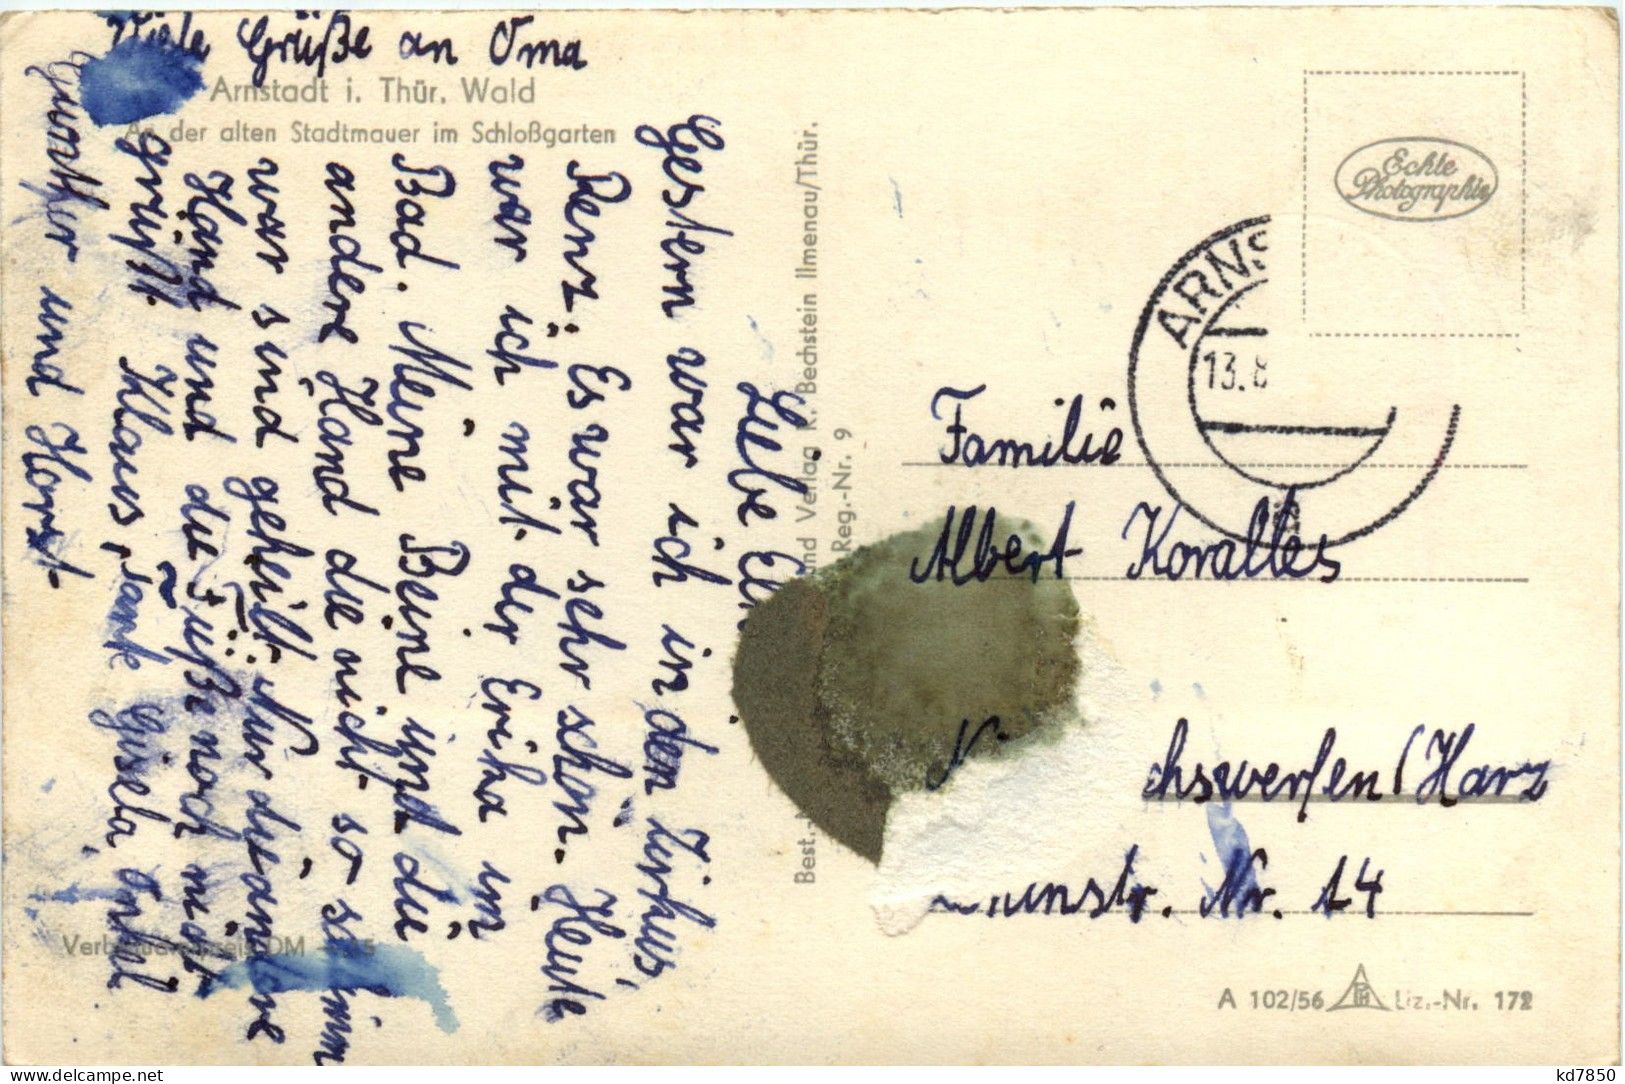 Viele Grüße an Oma
Arnstadt i. Thür. Wald
An der alten Stadtmauer im Schloßgarten
Liebe
Gestern war ich in den Zirkus
Renz. Es war sehr schön. Heute
war ich mit der Erika im
Bad. Meine Beine und die
andere Hand die nicht so schlimm
war sind geheilt. Nur die andere
Hand und die Füße noch nicht
grüßt Klaus, Tante Gisela, Onkel
Günther und Horst
Best.- und Verlag K. Bechstein Ilmenau/Thür.
Reg.-Nr. 9
Echte
Photographie
ARNS
13.8
Familie
Albert Koralles
chswerfen/Harz
unstr. Nr. 14
DM
A 102/56 Liz.-Nr. 172
kd7850